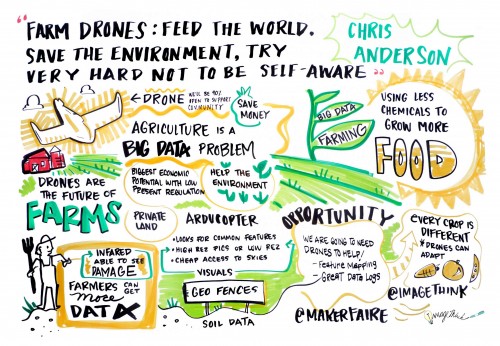 "FARM DRONES: FEED THE WORLD.
SAVE THE ENVIRONMENT, TRY
VERY HARD NOT TO BE SELF-AWARE"
CHRIS
ANDERSON
DRONE
WE'LL BE 90%
OPEN TO SUPPORT
COMMUNITY
SAVE
MONEY
AGRICULTURE IS A
BIG DATA PROBLEM
BIG DATA
FARMING
USING LESS
CHEMICALS TO
GROW MORE
FOOD
DRONES ARE
THE FUTURE OF
FARMS
BIGGEST ECONOMIC
POTENTIAL WITH LOW
PRESENT REGULATION
HELP THE
ENVIRONMENT
PRIVATE
LAND
ARDUCOPTER
• LOOKS FOR COMMON FEATURES
• HIGH REZ PICS OR LOW REZ
• CHEAP ACCESS TO SKIES
VISUALS
GEO FENCES
SOIL DATA
OPPORTUNITY
WE ARE GOING TO NEED
DRONES TO HELP!
- Feature Mapping
- GREAT DATA LOGS
EVERY CROP IS
DIFFERENT
* DRONES CAN
ADAPT
INFARED
ABLE TO SEE
DAMAGE
FARMERS CAN
more GET
DATA
@IMAGETHINK
@MAKERFAIRE
ImageThink